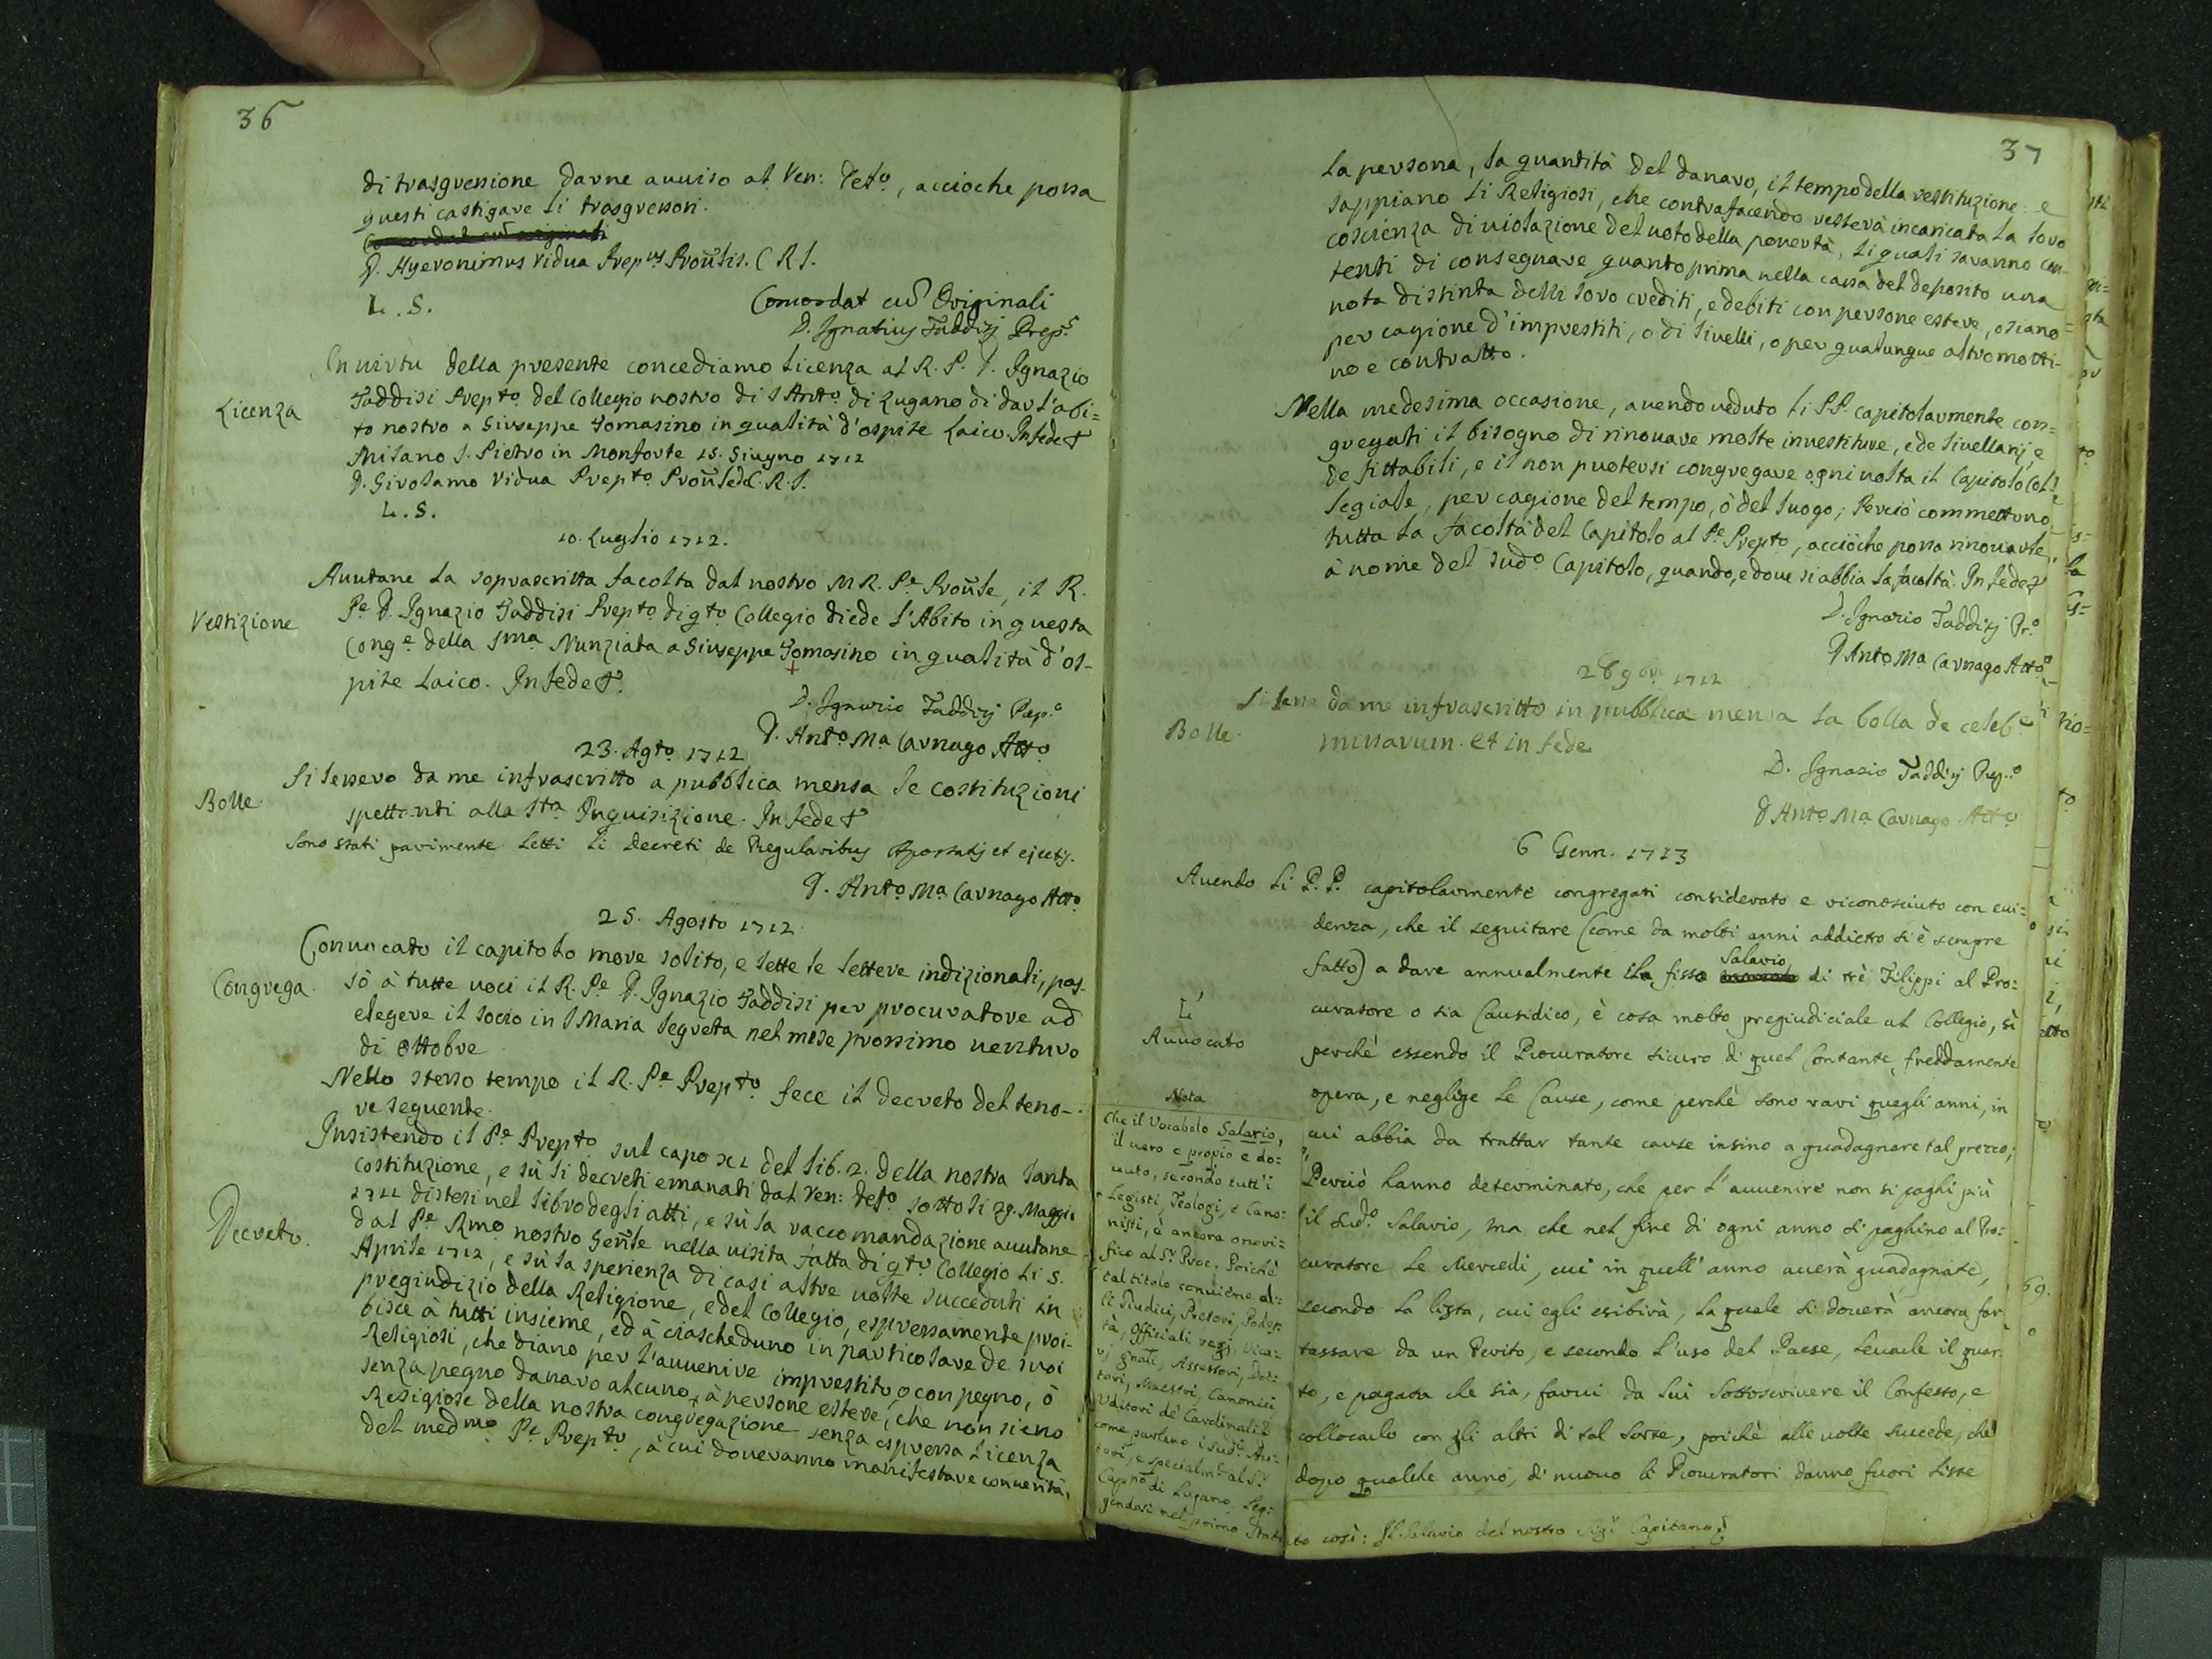 36
di trasgressione darne auuiso al Ven: Defo, accioche possa
questi castigare li trasgressori.
D. Hyeronimus Vidua Prepus Provlis. C R S.
L. S.
Concordat cu Originali
D. Ignatius Taddisj Preps
In uirtu della presente concediamo licenza al R. P. D. Ignazio
Licenza
Taddisi Prepto del Collegio nostro di S Anto di Lugano di dar l'abi=
to nostro a Giuseppe Tomasino in qualità d'ospite Laico. In fede &
Milano S. Pietro in Monforte 15. Giugno 1712
D. Girolamo Vidua Prepto Provle d. C. R. S.
L. S.
10. Luglio 1712.
Auutane la soprascritta facolta dal nostro M R. Pe Provle, il R.
Vestizione
Pe D. Ignazio Taddisi Prepto di qto Collegio diede l'Abito in questa
Conge della Sma Nunziata a Giuseppe Tomasino in qualità d'os-
pite Laico. In fede &.
D. Ignazio Taddisj Prep.o
D. Anto Ma Carnago Atto
23. Agto 1712
Si lessero da me infrascritto a pubblica mensa le costituzioni
Bolle
spettanti alla Sta Inquisizione. In fede &
Sono stati parimente Letti Li Decreti de Regularibus Apostatis et ejectis.
D. Anto Ma Carnago Atto
25. Agosto 1712
Conuocato il capitolo more solito, e lette le lettere indizionali, pas-
Congrega.
sò à tutte uoci il R. Pe D. Ignazio Taddisi per procuratore ad
elegere il socio in S Maria Segreta nel mese prossimo uenturo
di ottobre
Nello stesso tempo il R. Pe Prepto fece il decreto del teno-
re seguente.
Insistendo il Pe Prepto sul capo XI del lib. 2. della nostra santa
costituzione, e sù li decreti emanati dal Ven: Defo sotto li 29. Maggio
1711 distesi nel libro degli atti, e sù la raccomandazione auutane
Decreto.
dal Pe Rmo nostro Genle nella uisita fatta di qto Collegio li 5.
Aprile 1712, e sù la sperienza di casi altre uolte succeduti in
pregiudizio della Religione, e del Collegio, espressamente proi-
bisce à tutti insieme, ed à ciascheduno in particolare de suoi
Religiosi, che diano per l'auuenire imprestito, o con pegno, ò
senza pegno danaro alcuno, à persone estere, che non sieno
Religiose della nostra congregazione senza espressa licenza
del medmo Pe Prepto, à cui doueranno manifestare con uerità,
37
la persona, la quantità del danaro, il tempo della restituzione: e
sappiano li Religiosi, che contrafacendo resterà incaricata la loro
coscienza di uiolazione del uoto della pouertà, li quali saranno con-
tenti di consegnare quanto prima nella cassa del deposito una
nota distinta delli loro crediti, e debiti con persone estere, o siano
per cagione d'imprestiti, o di liuelli, o per qualunque altro motti-
uo e contratto.
Nella medesima occasione, auendo ueduto li PP. capitolarmente con=
gregati il bisogno di rinouare molte inuestiture, e de liuellarij, e
de fittabili, e il non puotersi congregare ogni uolta il Capitolo Col=
legiale, per cagione del tempo, ò del luogo; Perciò commettono
tutta la facoltà del Capitolo al Pe Prepto, accioche possa rinouarle
à nome del sudo Capitolo, quando, e doue si abbia la facoltà. In fede &
D. Ignazio Taddisj Pr.o
D Anto Ma Carnago Atto
28 9bre 1712
Si lesse da me infrascritto in pubblica mensa la bolla de celebe
Bolle.
missarum. et in fede
D. Ignazio Taddisj Prep.o
D Anto Ma Carnago Atto
6 Genn. 1713
Auendo Li P. P. capitolarmente congregati considerato e riconosciuto con eui=
denza, che il seguitare (come da molti anni addietro si è sempre
fatto) a dare annualmente il fisso Salario di trè Filippi al Pro=
L'
Auuocato
curatore o sia Causidico, è cosa molto pregiudiciale al Collegio, sì
perchè essendo il Procuratore sicuro di quel Contante, freddamente
opera, e neglige le Cause, come perchè sono rari quegli anni, in
cui abbia da trattar tante cause insino a guadagnare tal prezzo;
Perciò hanno determinato, che per l'auuenire non si paghi più
il sudo Salario, ma che nel fine di ogni anno si paghino al Pro=
curatore Le Mercedi, cui in quell'anno auerà guadagnate,
secondo la lista, cui egli esibirà, la quale si douerà ancora far
tassare da un Perito, e secondo l'uso del Paese, leuarle il quar-
to, e pagata che sia, farui da lui sottoscriuere il Confesso, e
collocarlo con gli altri di tal sorte, poichè alle uolte succede, che
dopo qualche anno, di nuouo li Procuratori danno fuori liste
Nota
Che il Vocabolo Salario,
il uero e propio e do=
uuto, secondo tutt'i
Legisti, Teologi, e Cano=
nisti, è ancora onori=
fico al Sr Proc. Poichè
tal titolo conuiene al=
li Giudici, Pretori, Podes=
tà, Officiali regj, Vica=
rj gnali, Assessori, Dot=
tori, Maestri, Canonici,
Uditori de' Cardinali &
come parlano i sudi Au=
tori, e specialmte al Sr
Capno di Lugano. Leg=
gendosi nel primo Statu
to così: Il Salario del nostro Sigr Capitano &